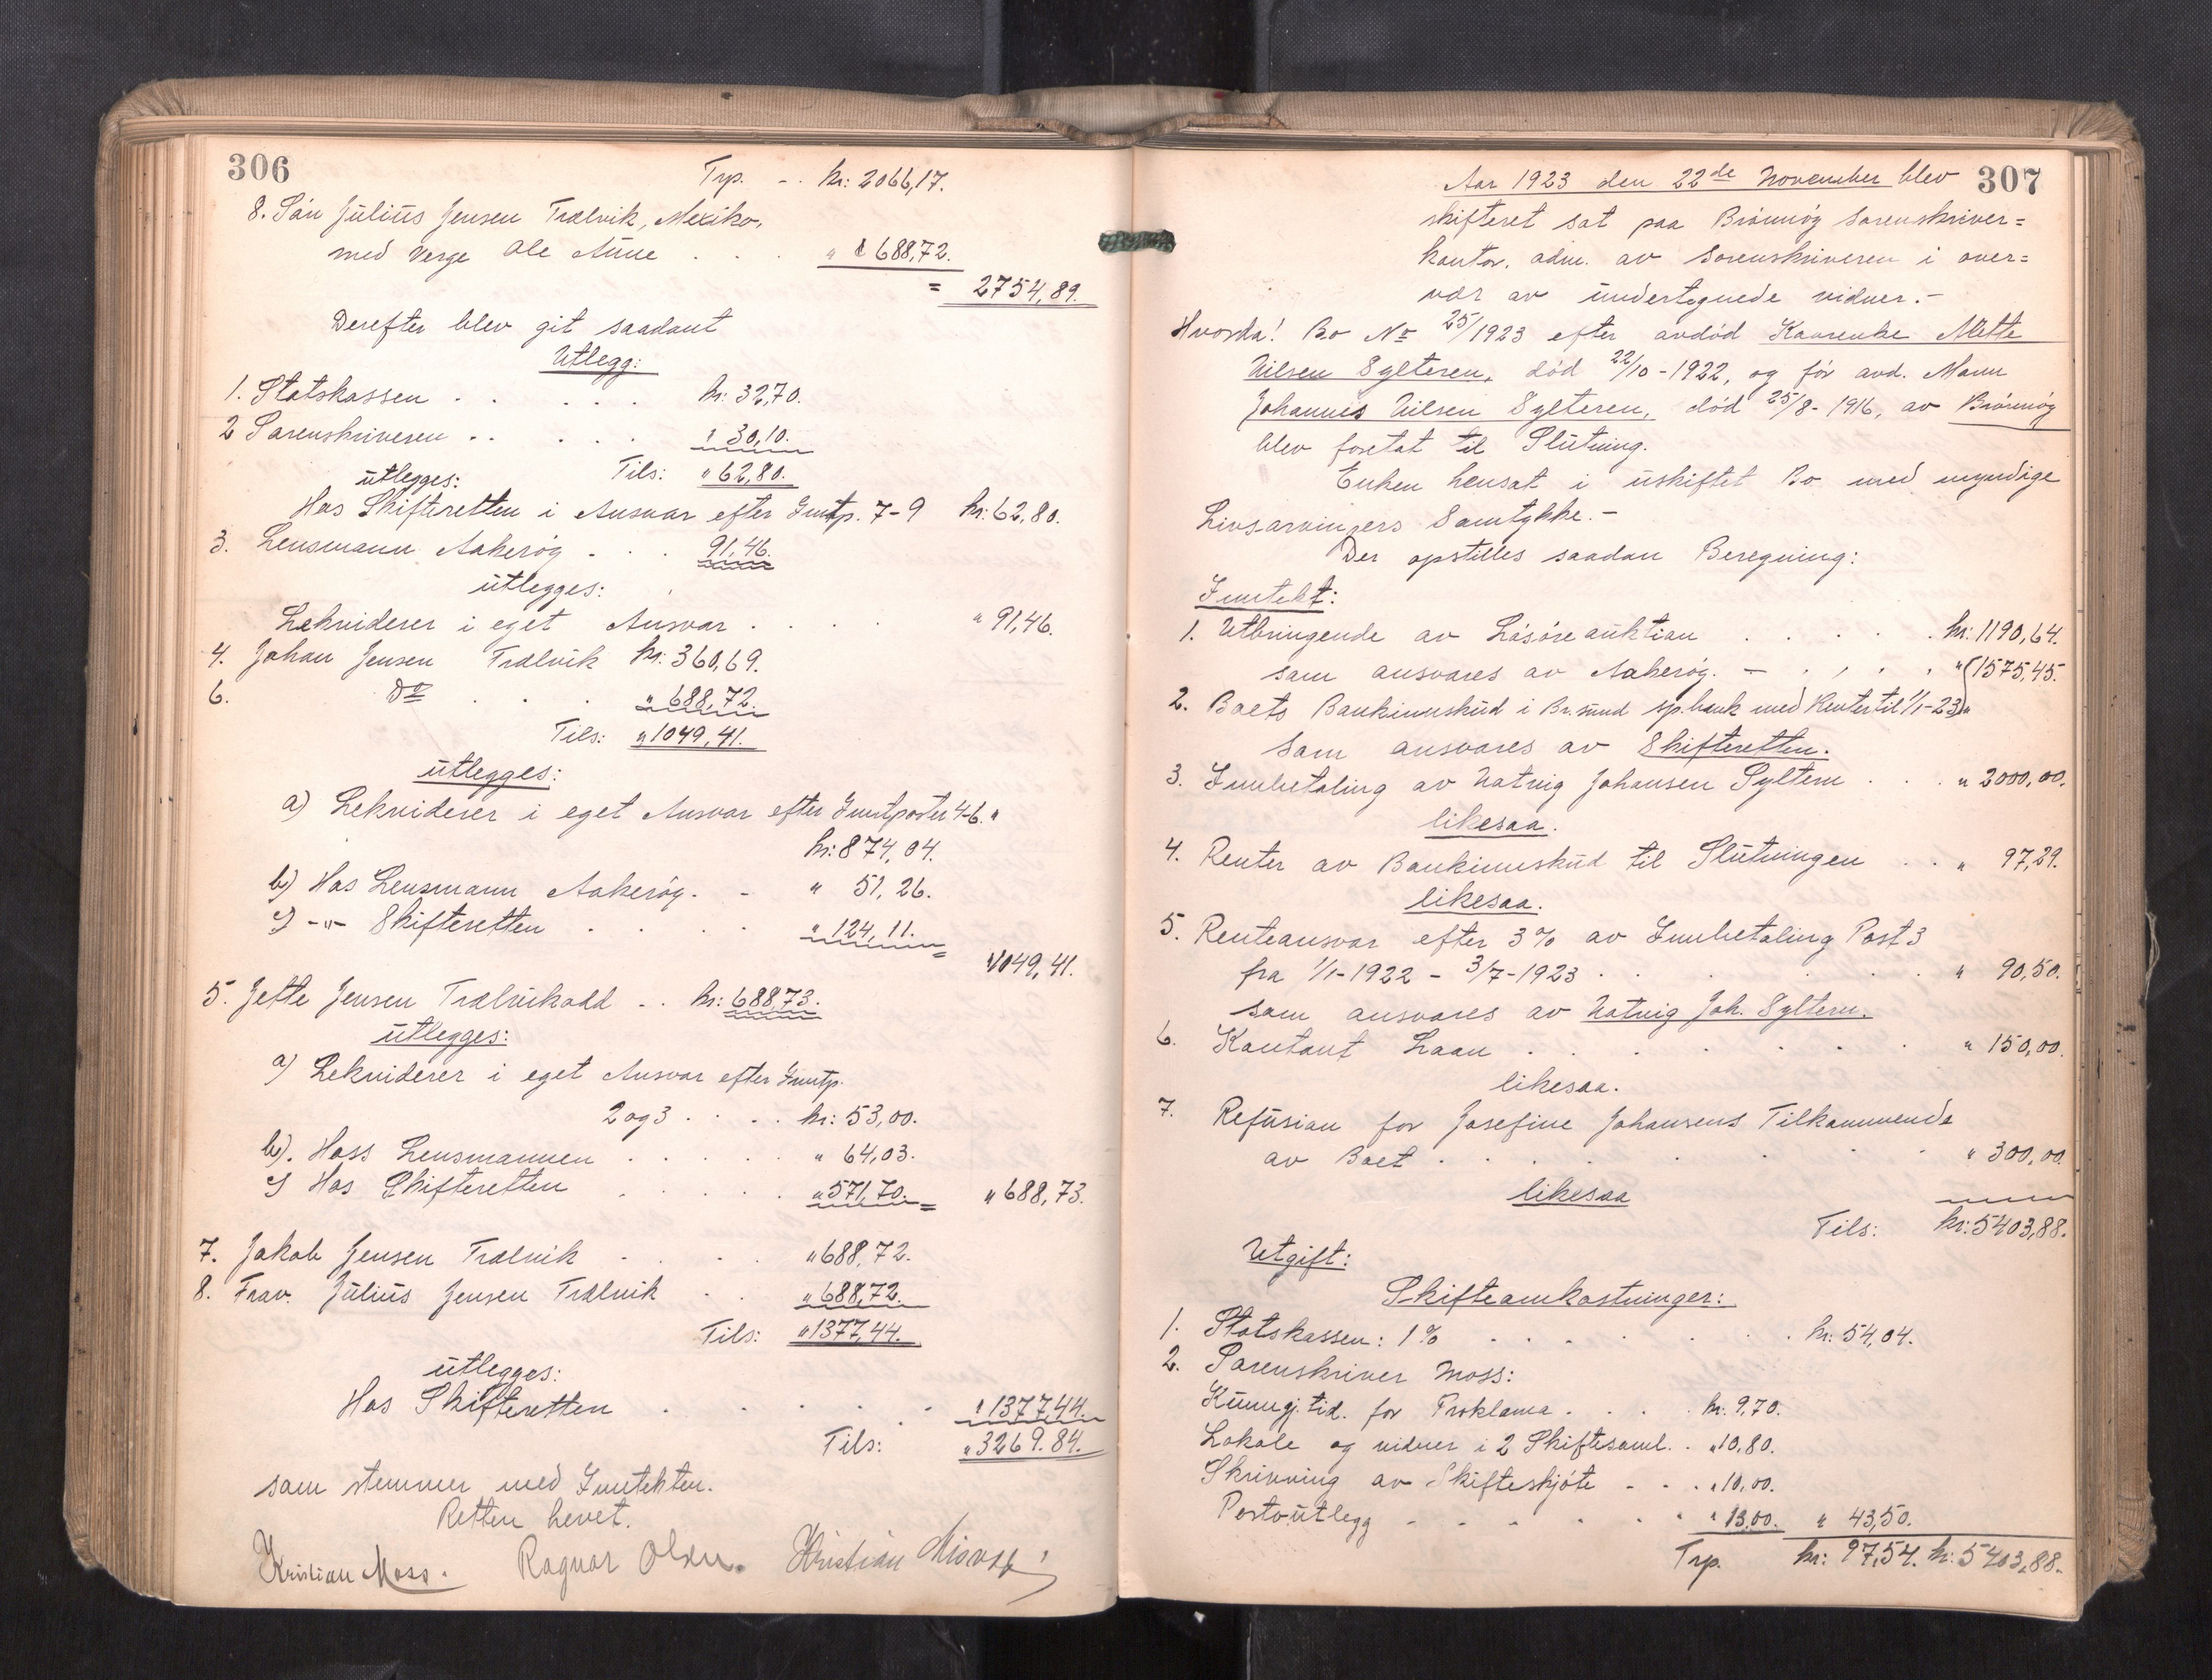 306
Trp. - . kr: 2066,17.
8. Sön Julius Jensen Trælvik, Mexiko,
med Verge Ole Aune . . . " 688,72.
= 2754,89.
Derefter blev git saadant
Utlegg:
1. Statskassen . . . . . kr: 32,70.
2 Sorenskriveren . . . . . " 30,10.
utlegges: Tils: " 62,80.
Hos Skifteretten i Ansvar efter Inntp. 7-9 kr: 62,80.
3. Lensmann Aakerøy - . . 91,46.
utlegges:
Lekviderer i eget Ansvar . . . . " 91,46.
4. Johan Jensen Trælvik kr: 360,69.
6. Do . . . " 688,72.
Tils: " 1049,41.
utlegges:
a) Lekviderer i eget Ansvar efter Inntposter 4-6. "
kr: 874,04.
b) Hos Lensmann Aakerøy. - " 51,26.
c) -"- Skifteretten . . . . " 124,11. =
" 1049,41.
5. Jette Jensen Trælvikodd - . kr: 688,73.
utlegges:
a) Lekviderer i eget Ansvar efter Inntp.
2 og 3 . . . . kr: 53,00.
b). Hoss Lensmannen . . . . . " 64,03.
c) Hos Skifteretten . . . . . " 571,70. = " 688,73.
7. Jakob Jensen Trælvik . . . . " 688,72.
8. Frav. Julius Jensen Trælvik . . " 688,72.
Tils: " 1377,44.
utlegges:
Hos Skifteretten . . . . . " 1377,44.
Tils: " 3269.84.
som stemmer med Inntekten.
Retten hevet.
Kristian Moss. Ragnar Olsen. Kristian
Aar 1923 den 22de November blev 307
skifteret sat paa Brönnöy Sorenskriver=
kontor, adm. av Sorenskriveren i over=
vær av undertegnede vidner.-
Hvorda! Bo No 25/1923 efter avdöd Kaurenke Mette
Nilsen Sylteren, död 22/10-1922, og för avd. Mann
Johannes Nilsen Sylteren, död 25/8-1916, av Brönnöy
blev foretat til Slutning.
Enken hensat i uskiftet Bo med myndige
Livsarvingers Samtykke.-
Der opstilles saadan Beregning:
Inntekt:
1. Utbringende av Lösöreauktion . . . . . kr: 1190,64.
som ansvares av Aakerøy. - . . . . " (1575,45.
2. Boets Bankinnskud i Br.sund sp.bank med Renter til 1/1-23) "
som ansvares av Skifteretten.
3. Innbetaling av Natvig Johansen Syltern . . . " 2000,00.
likesaa.
4. Renter av Bankinnskud til Slutningen . . " 97,29.
likesaa.
5. Renteansvar efter 3% av Innbetaling Post 3
fra 1/1-1922 - 3/7-1923 . . . . . . " 90,50.
som ansvares av Natvig Joh. Syltern.
6. Kontant Laan . . . . . . . " 150,00.
likesaa.
7. Refusion for Josefine Johansens Tilkommende
av Boet . . . . . . . " 300,00.
likesaa
Tils: kr: 5403,88.
Utgift:
Skifteomkostninger:
1. Statskassen: 1% . . . . . . . kr: 54,04.
2. Sorenskriver Moss:
Kunngj. tid. for Proklama . . . . kr. 9,70.
Lokale og vidner i 2 Skiftesaml. . " 10,80.
Skrivning av Skifteskjöte - . . " 10,00.
Portoutlegg - - - . . . " 13.00. " 43,50.
Trp. kr: 97,54. kr: 5403,88.